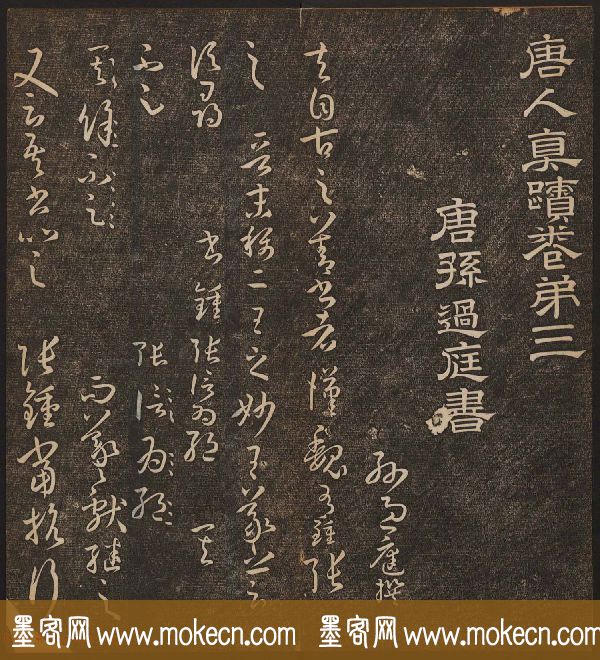 唐人真蹟卷弟三
唐孫過庭書
孫過庭撰
夫自古之善書者漢魏有鍾張
之 晉末稱二王之妙王羲之云
頃尋 書鍾張信為絕 其
張信為絕
餘不足 而羲獻繼之
又云吾書比之 張鍾當抗行
墨客网 www.mokecn.com 墨客网 www.mokecn.com